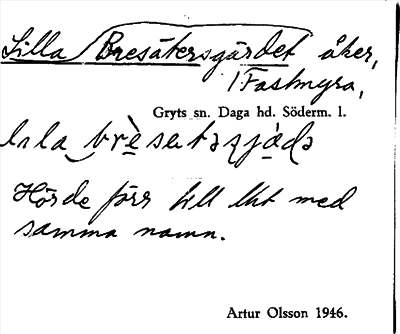 Lilla Bresätersgärdet åker,
i Fastmyra,
Gryts sn. Daga hd. Söderm. l.
Hörde förr till lht med
samma namn.
Artur Olsson 1946.